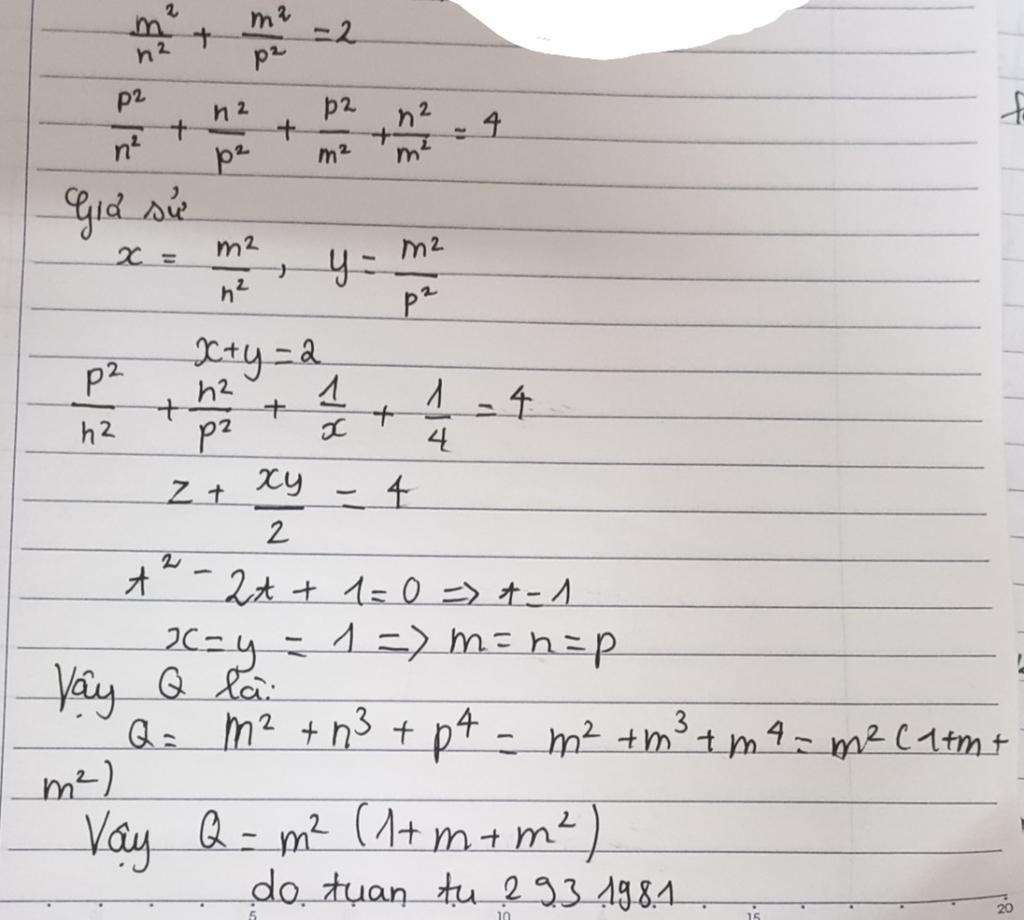 m²/n² + m²/p² = 2
p²/n² + n²/p² + p²/m² + n²/m² = 4
Giả sử
x = m²/n², y = m²/p²
x+y = 2
p²/n² + n²/p² + 1/x + 1/4 = 4
z + xy/2 = 4
t² - 2t + 1 = 0 => t = 1
x = y = 1 => m = n = p
Vậy Q là:
Q = m² + n³ + p⁴ = m² + m³ + m⁴ = m² (1+m+
m²)
Vậy Q = m² (1 + m + m²)
do tuan tu 2931981
5 10 15 20